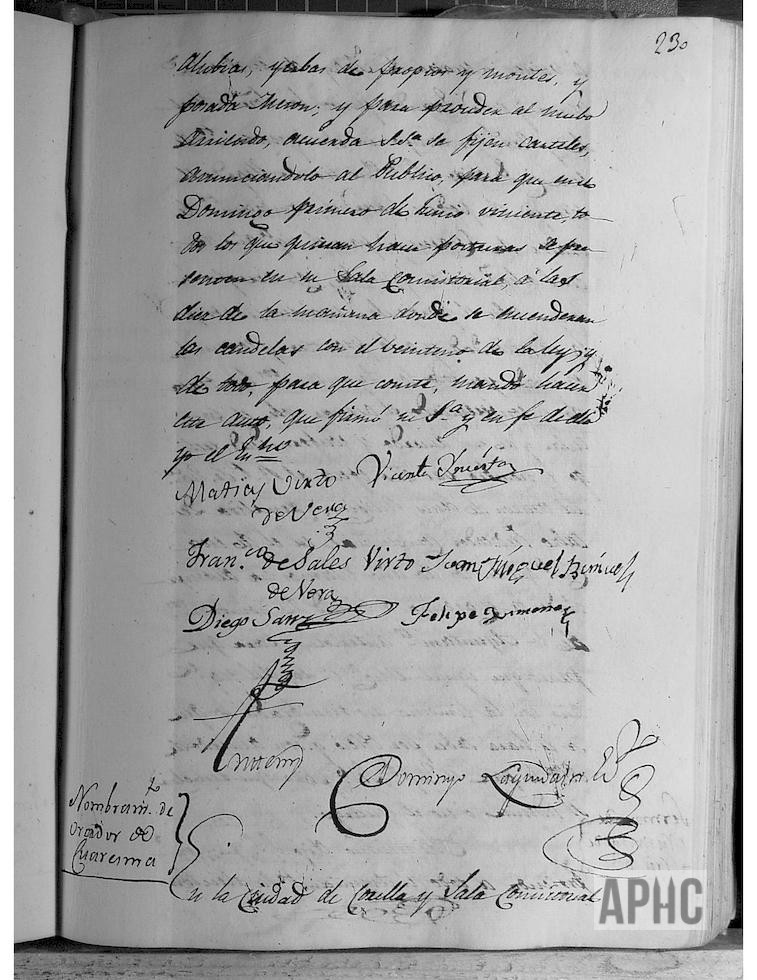 230
Alubias, yerbas de propios y montes, y
posada Meson; y para proceder al nuebo
Arriendo, acuerda S.Sª se fijen carteles,
anunciandolo al Publico, para que en el
Domingo primero de Junio viniente, to
dos los que quieran hacer posturas se pre
senten en su Sala Consistorial á las
diez de la mañana donde se encenderan
las candelas con el veinteno de la ley, y
de todo, para que conste, mandó hacer
este auto, que firmó su Sª y en fe de ello
yo el Ssno
Matias Virto
de Vera
Vicente
Fran.co de Sales Virto
de Vera
Juan Miguel
Diego Sanz
Felipe Ximenez
Antemi
Domingo
Nombram.to de
Orador de
Cuaresma
En la Ciudad de Corella y Sala Consistorial
APHC